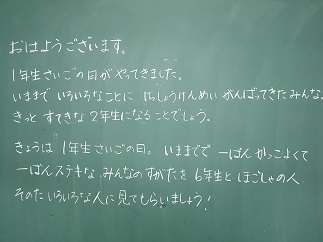 おはようございます。
1年生さいごの日がやってきました。
いままで いろいろなことに いっしょうけんめい がんばってきたみんな。
きっと すてきな 2年生になることでしょう。
きょうは 1年生さいごの日。いままでで 一ばん かっこよくて
一ばんステキな みんなのすがたを 6年生と ほごしゃの人
そのた いろいろな人に 見てもらいましょう!